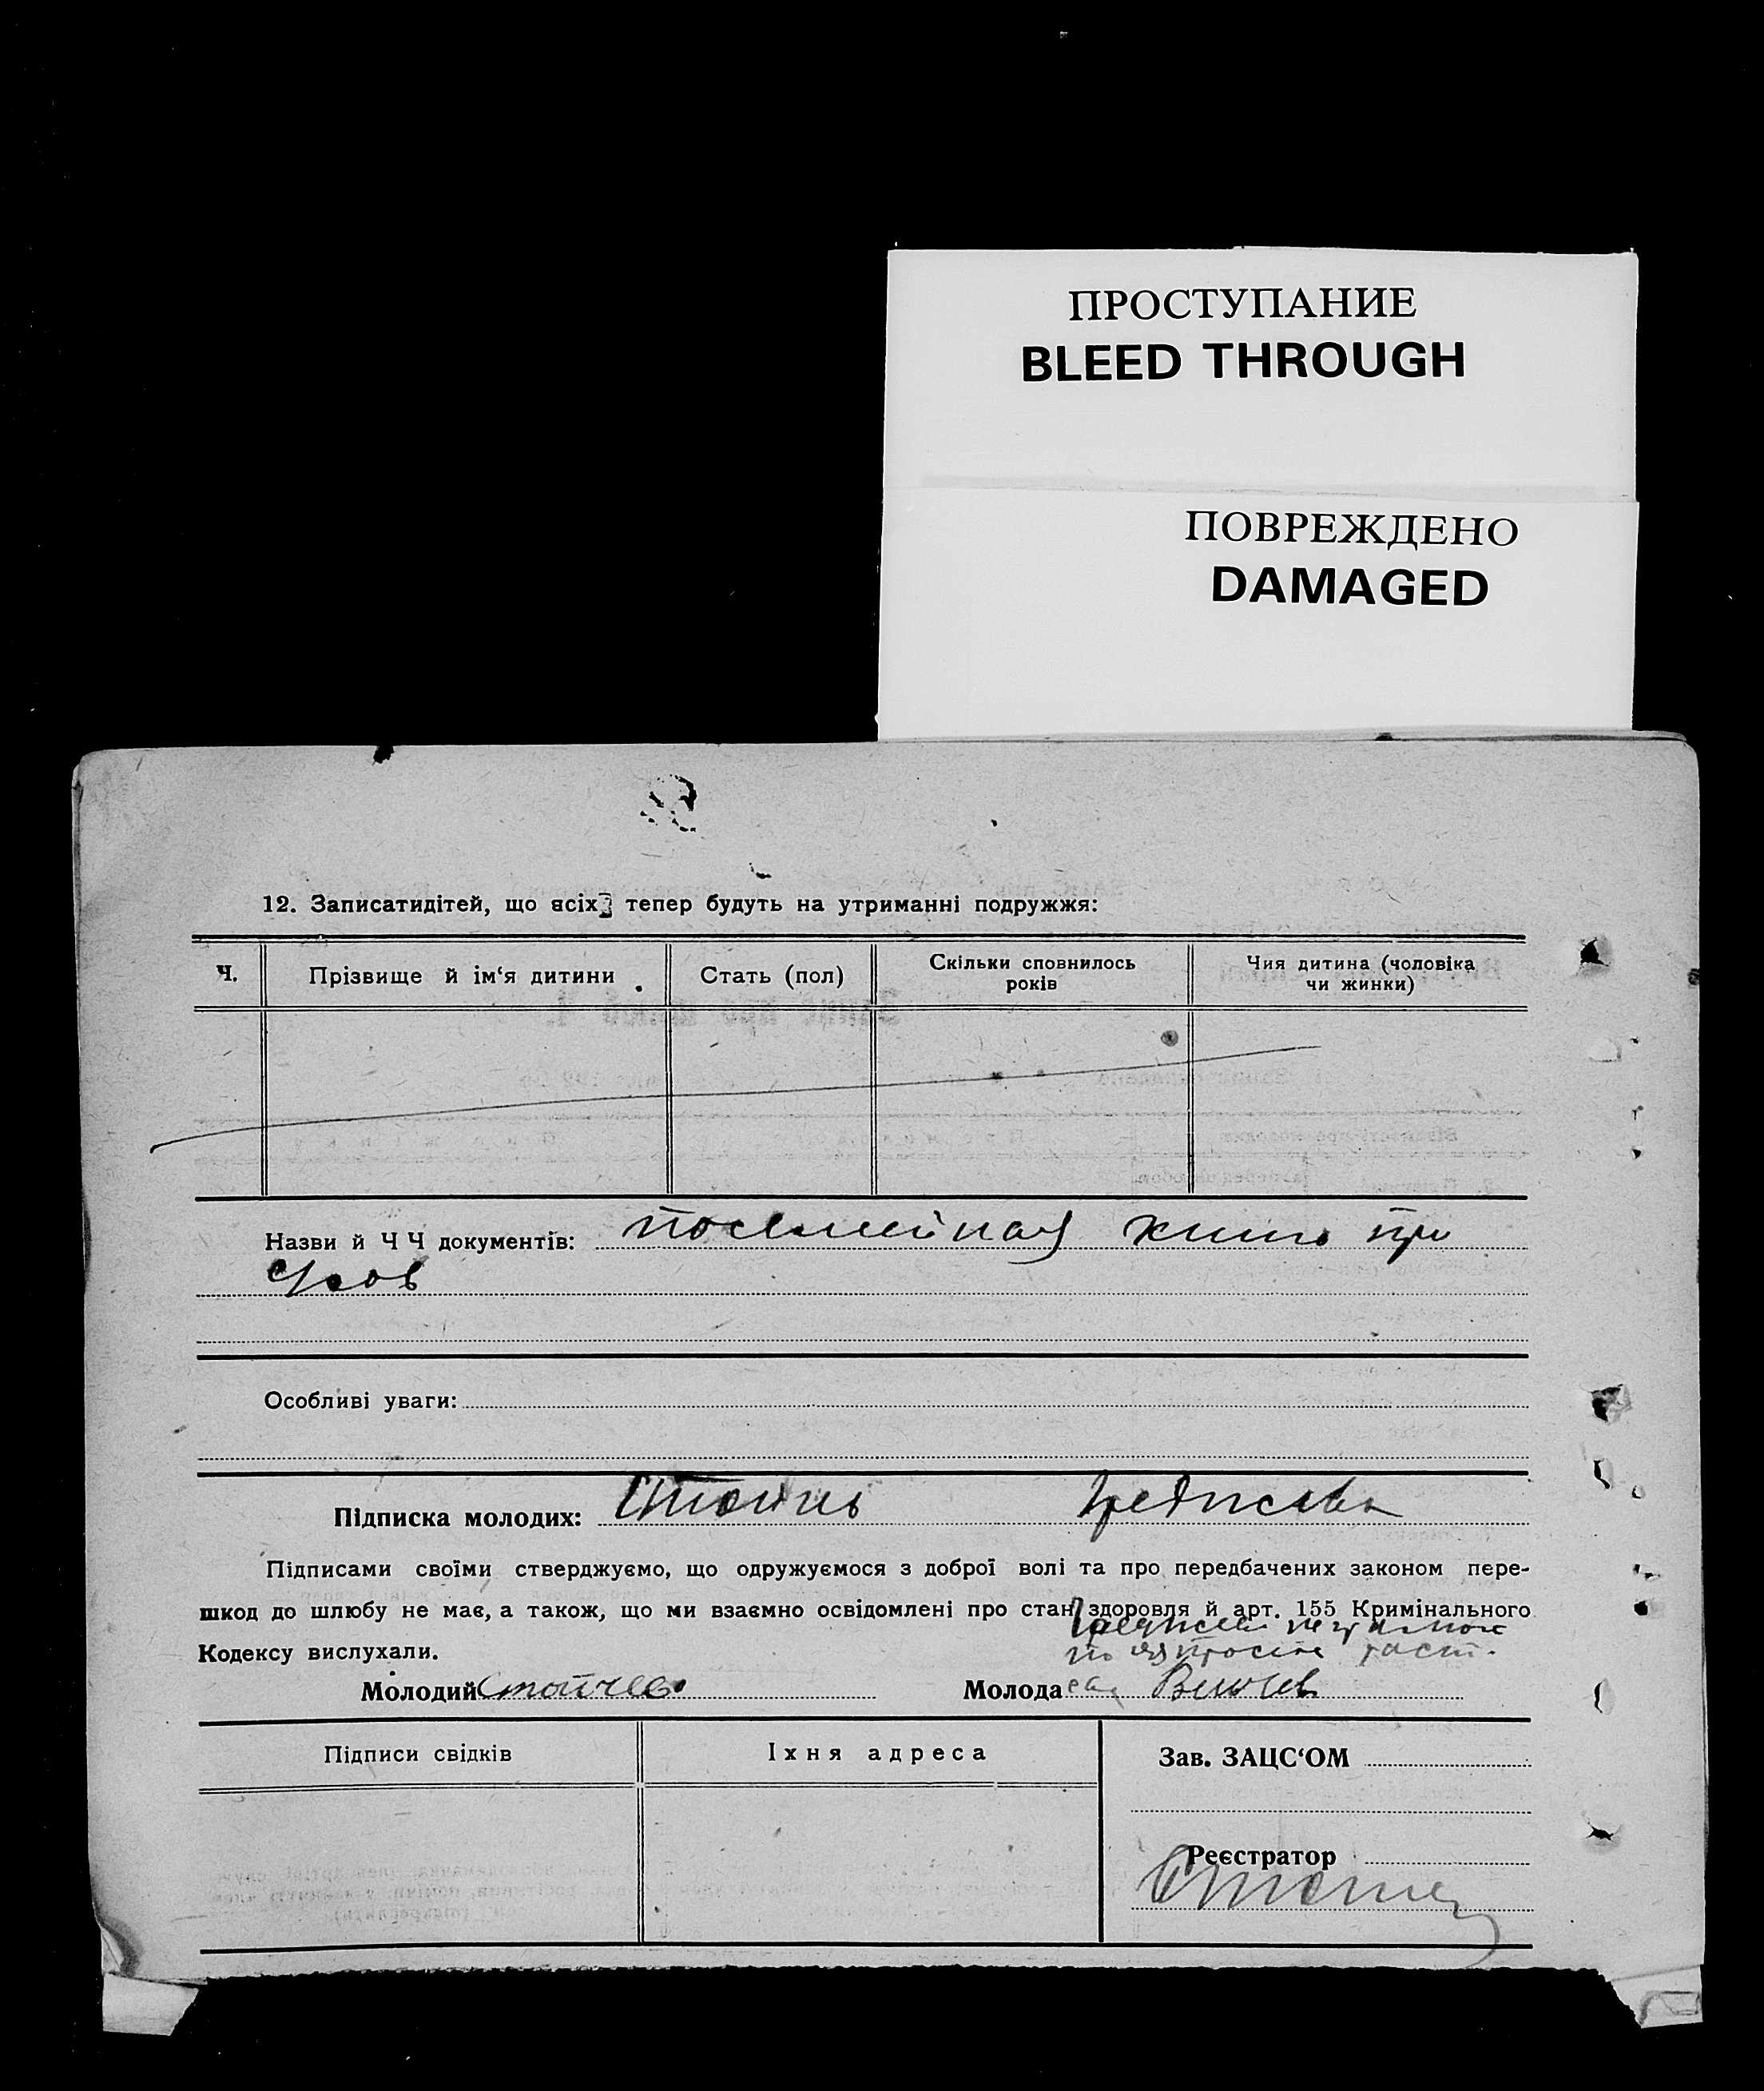 ПРОСТУПАНИЕ
BLEED THROUGH
ПОВРЕЖДЕНО
DAMAGED
12. Записатидітей, що всіх тепер будуть на утриманні подружжя:
Ч.
Прізвище й ім‘я дитини
Стать (пол)
Скільки сповнилось
років
Чия дитина (чоловіка
чи жинки)
Назви й Ч Ч документів: посемейная
Особливі уваги:
Підписка молодих:
Підписами своїми стверджуємо, що одружуємося з доброї волі та про передбачених законом пере-
шкод до шлюбу не має, а також, що ми взаємно освідомлені про стан здоровля й арт. 155 Кримінального
Кодексу вислухали.
Молодий Стойчев
Молода
Підписи свідків
Їхня адреса
Зав. ЗАЦС‘ОМ
Реєстратор